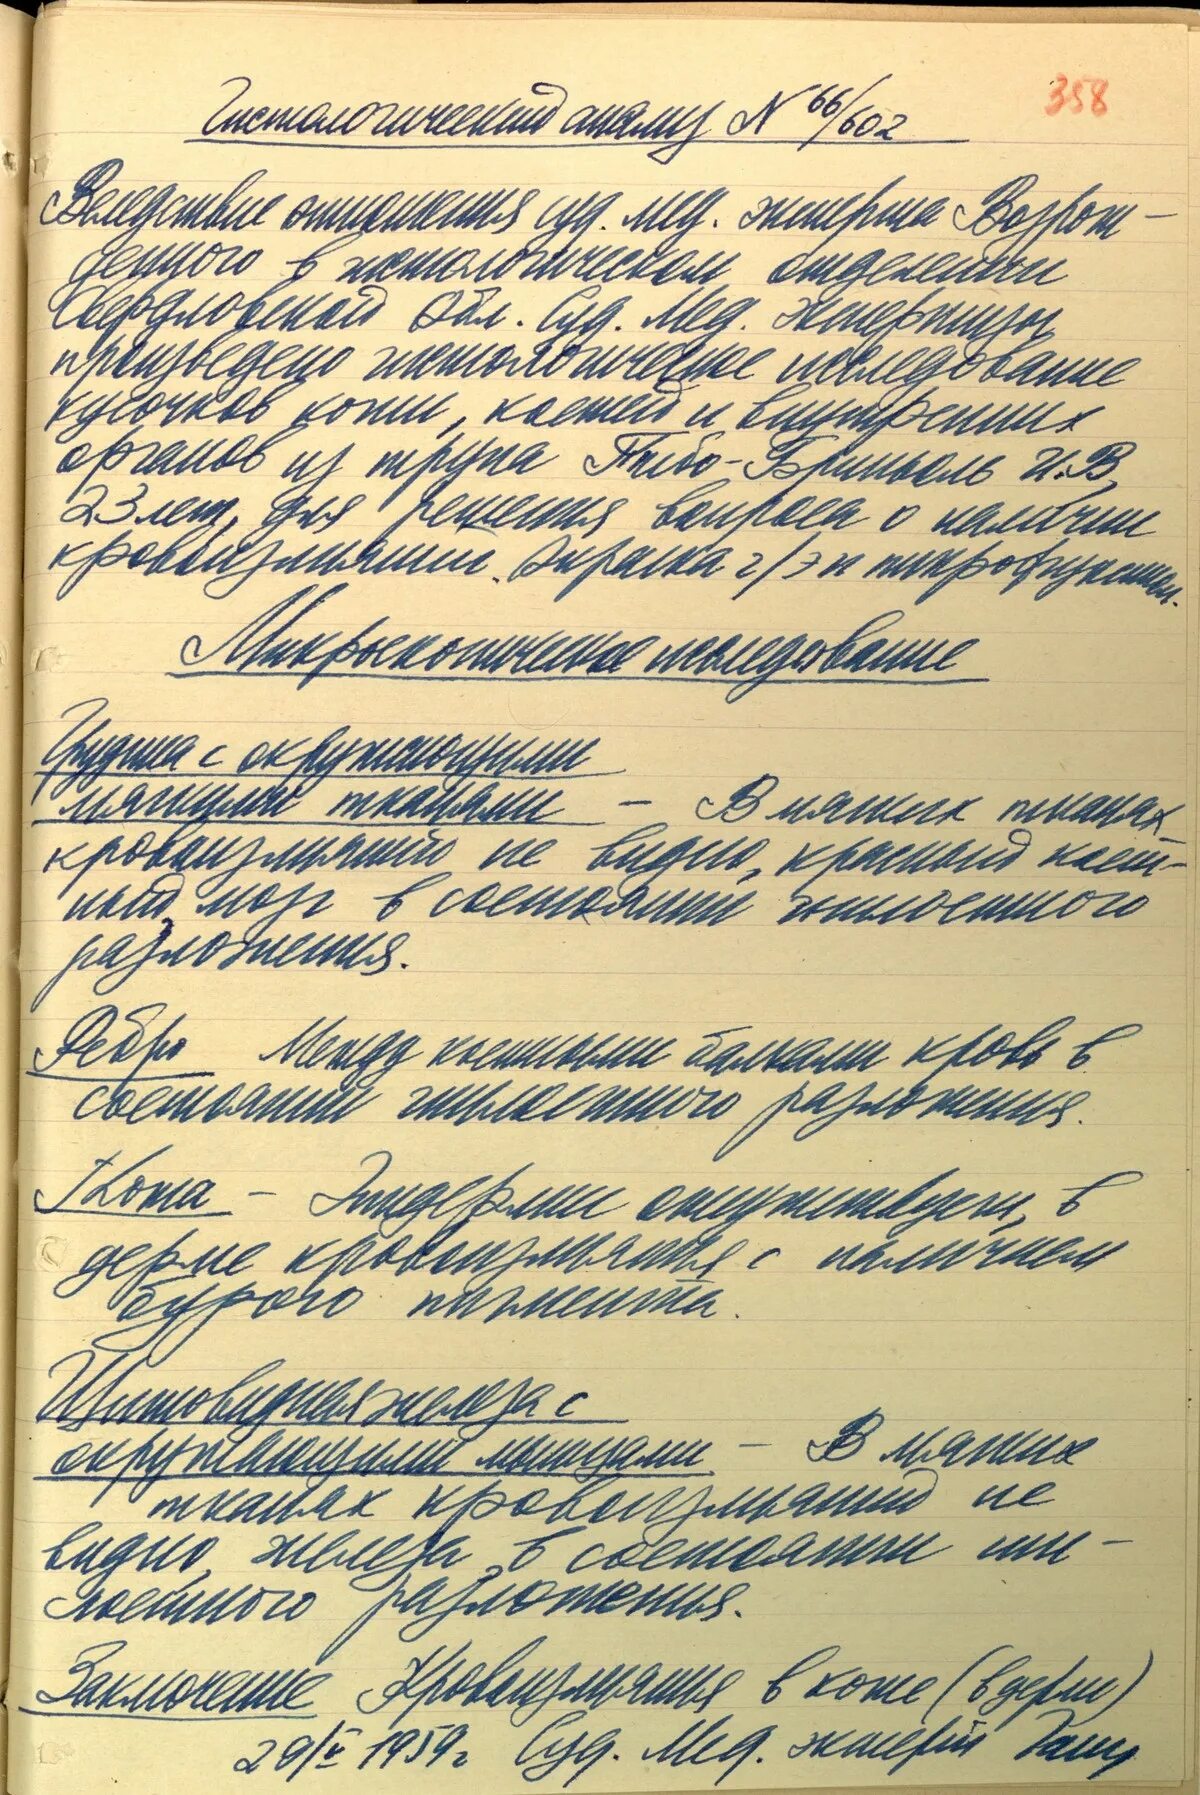 358
Гистологический анализ N 66/602
Вследствие отношения суд. мед. эксперта Возрож-
денного в гистологическом отделении
Свердловской Обл. Суд. Мед. Экспертизы
произведено гистологическое исследование
кусочков кожи, костей и внутренних
органов из трупа Тибо-Бриньоль Н.В.
23 лет, для решения вопроса о наличии
кровоизлияний. Окраска г/э и пикрофуксином.
Микроскопическое исследование
Грудина с окружающими
мягкими тканями – В мягких тканях
кровоизлияний не видно, красный кост-
ный мозг в состоянии гнилостного
разложения.
Ребро Между костными балками кровь в
состоянии гнилостного разложения.
Кожа – Эпидермис отсутствует, в
дерме кровоизлияния с наличием
бурого пигмента.
Щитовидная железа с
окружающими мышцами – В мягких
тканях кровоизлияний не
видно, железа в состоянии гни-
лостного разложения.
Заключение Кровоизлияния в коже (в дерме)
29/V 1959 г Суд. Мед. эксперт